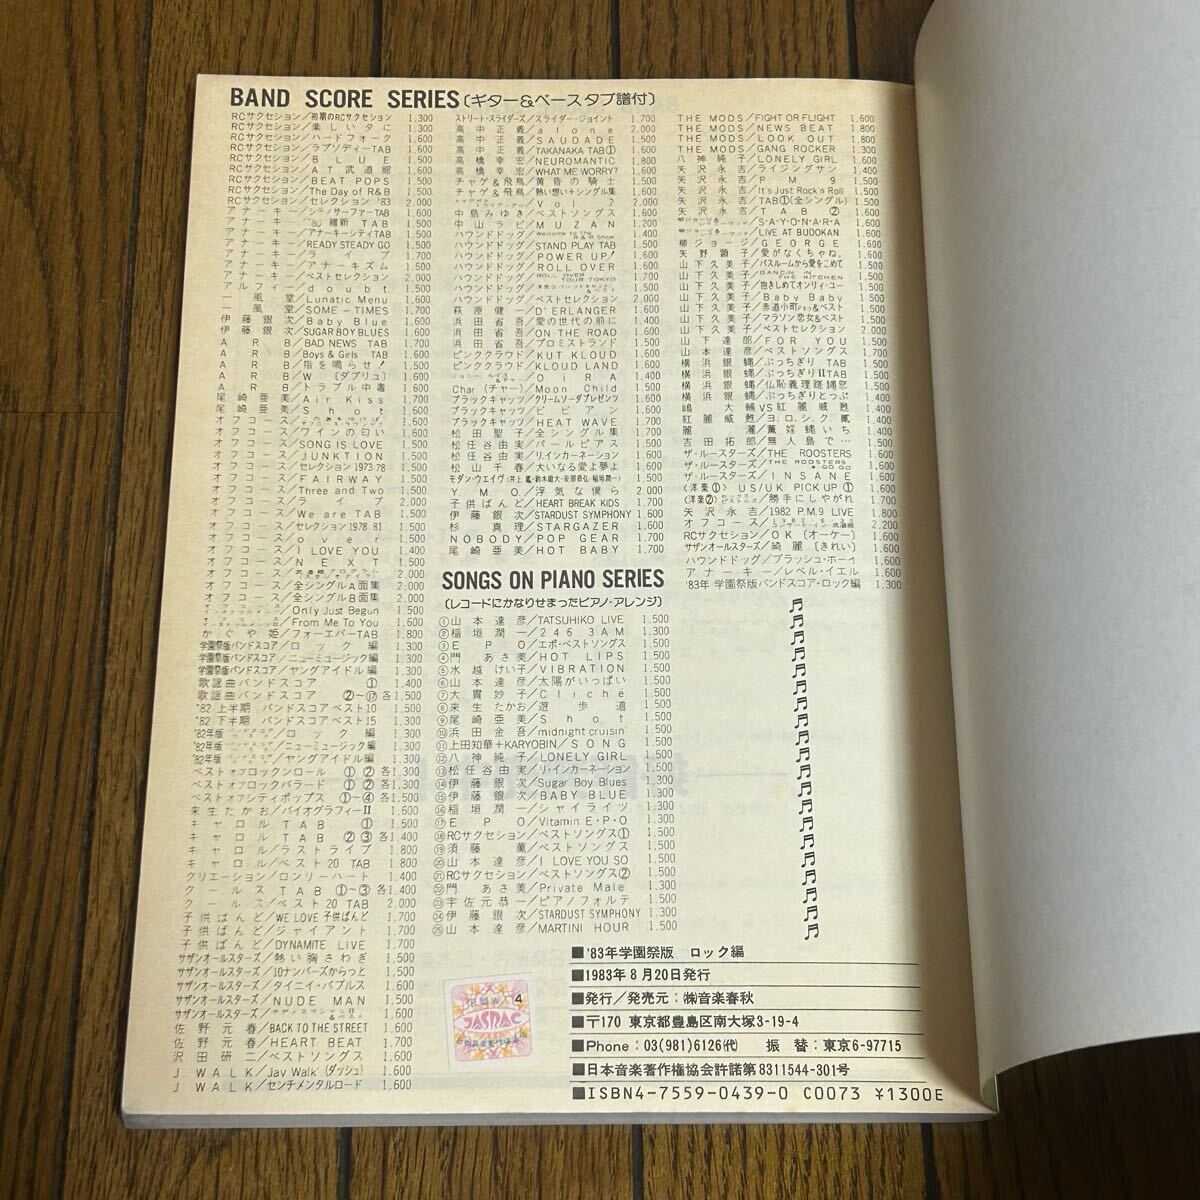 BAND SCORE SERIES〔ギター&ベースタブ譜付〕
RCサクセション/初期のRCサクセション 1,300
RCサクセション/楽しい夕に 1,300
RCサクセション/ハードフォーク 1,600
RCサクセション/ラプソディーTAB 1,600
RCサクセション/BLUE 1,500
RCサクセション/AT武道館 1,600
RCサクセション/BEAT POPS 1,500
RCサクセション/The Day of R&B 1,500
RCサクセション/セレクション '83 2,000
アナーキー/シティサーファーTAB 1,600
アナーキー/'80維新TAB 1,500
アナーキー/アナーキーシティTAB 1,500
アナーキー/READY STEADY GO 1,500
アナーキー/ライブ 1,700
アナーキー/アナーキズム 1,500
アナーキー/ベストセレクション 2,000
アルフィー/doubt 1,500
一風堂/Lunatic Menu 1,600
一風堂/SOME-TIMES 1,700
伊藤銀次/Baby Blue 1,600
伊藤銀次/SUGAR BOY BLUES 1,600
ARB/BAD NEWS TAB 1,700
ARB/Boys & Girls TAB 1,600
ARB/指を鳴らせ! 1,500
ARB/W〔ダブリュ〕 1,600
ARB/トラブル中毒 1,600
尾崎亜美/Air Kiss 1,700
尾崎亜美/Shot 1,600
オフコース/ワインの匂い 1,600
オフコース/SONG IS LOVE 1,500
オフコース/JUNKTION 1,500
オフコース/セレクション1973-78 1,500
オフコース/FAIRWAY 1,500
オフコース/Three and Two 1,500
オフコース/ライブ 2,000
オフコース/We are TAB 1,500
オフコース/セレクション1978-81 1,500
オフコース/over 1,500
オフコース/I LOVE YOU 1,400
オフコース/NEXT 1,500
オフコース/全シングルA面集 2,000
オフコース/全シングルB面集 2,000
/Only Just Begun 1,500
/From Me To You 1,600
かぐや姫/フォーエバーTAB 1,800
学園祭版バンドスコア/ロック編 1,300
学園祭版バンドスコア/ニューミュージック編 1,300
学園祭版バンドスコア/ヤングアイドル編 1,300
歌謡曲バンドスコア ① 1,400
歌謡曲バンドスコア ②〜⑰ 各1,500
'82上半期 バンドスコアベスト10 1,500
'82下半期 バンドスコアベスト15 1,300
'82年版/ロック編 1,300
'82年版/ニューミュージック編 1,300
'82年版/ヤングアイドル編 1,300
ベストオブロックンロール ①② 各1,300
ベストオブロックバラード ①② 各1,300
ベストオブシティポップス ①〜④ 各1,500
来生たかお/バイオグラフィーII 1,600
キャロルTAB ① 1,500
キャロルTAB ②③ 各1,400
キャロル/ラストライブ 1,800
キャロル/ベスト20 TAB 1,800
クリエーション/ロンリーハート 1,400
クールスTAB ①〜③ 各1,400
クールス/ベスト20 TAB 2,000
子供ばんど/WE LOVE 子供ばんど 1,700
子供ばんど/ジャイアント 1,700
子供ばんど/DYNAMITE LIVE 1,700
サザンオールスターズ/熱い胸さわぎ 1,500
サザンオールスターズ/10ナンバーズからっと 1,500
サザンオールスターズ/タイニイ・バブルス 1,500
サザンオールスターズ/NUDE MAN 1,500
佐野元春/BACK TO THE STREET 1,600
佐野元春/HEART BEAT 1,700
沢田研二/ベストソングス 1,600
J.WALK/Jay Walk〔ダッシュ〕 1,600
J.WALK/センチメンタルロード 1,600
ストリート・スライダーズ/スライダー・ジョイント 1,700
高中正義/alone 2,000
高中正義/SAUDADE 1,500
高中正義/TAKANAKA TAB① 1,600
高橋幸宏/NEUROMANTIC 1,800
高橋幸宏/WHAT ME WORRY? 1,600
チャゲ&飛鳥/黄昏の騎士 1,500
チャゲ&飛鳥/熱い想い+シングル集 1,600
/Vol 2 2,000
中島みゆき/ベストソングス 1,600
中山ラビ/MUZAN 1,200
ハウンドドッグ/Welcome to The R&R Show 1,400
ハウンドドッグ/STAND PLAY TAB 1,500
ハウンドドッグ/POWER UP! 1,600
ハウンドドッグ/ROLL OVER 1,600
ハウンドドッグ/ROLL OVER TOUR TOKYO 1,700
ハウンドドッグ/ベストセレクション 2,000
萩原健一/D'ERLANGER 1,600
浜田省吾/愛の世代の前に 1,400
浜田省吾/ON THE ROAD 1,600
浜田省吾/プロミストランド 1,500
ピンククラウド/KUT KLOUD 1,600
ピンククラウド/KLOUD LAND 1,600
/OIRA 1,400
Char〔チャー〕/Moon Child 1,500
ブラックキャッツ/クリームソーダプレゼンツ 1,600
ブラックキャッツ/ビビアン 1,600
ブラックキャッツ/HEAT WAVE 1,700
松田聖子/全シングル集 1,700
松任谷由実/パールピアス 1,500
松任谷由実/リインカーネーション 1,600
松山千春/大いなる愛よ夢よ 1,600
モダン・ウエイヴ 1,500
Y.M.O./浮気な僕ら 2,000
子供ばんど/HEART BREAK KIDS 1,700
伊藤銀次/STARDUST SYMPHONY 1,600
杉真理/STARGAZER 1,600
NOBODY/POP GEAR 1,700
尾崎亜美/HOT BABY 1,700
THE MODS/FIGHT OR FLIGHT 1,600
THE MODS/NEWS BEAT 1,800
THE MODS/LOOK OUT 1,800
THE MODS/GANG ROCKER 1,300
八神純子/LONELY GIRL 1,600
矢沢永吉/ライジングサン 1,400
矢沢永吉/PM9 1,500
矢沢永吉/It's Just Rock'n Roll 1,500
矢沢永吉/TAB①(全シングル) 1,500
矢沢永吉/TAB② 1,600
/S・A・Y・O・N・A・R・A 1,600
/LIVE AT BUDOKAN 1,600
柳ジョージ/GEORGE 1,600
矢野顕子/愛がなくちゃね。 1,600
山下久美子/バスルームから愛をこめて 1,500
山下久美子/DANCIN' IN THE KITCHEN 1,500
山下久美子/抱きしめてオンリィ・ユー 1,500
山下久美子/Baby Baby 1,500
山下久美子/赤道小町ドキッ&ベスト 1,500
山下久美子/マラソン恋女&ベスト 1,500
山下久美子/ベストセレクション 2,000
山下達郎/FOR YOU 1,500
山本達彦/ベストソングス 1,700
横浜銀蝿/ぶっちぎりTAB 1,500
横浜銀蝿/ぶっちぎりIITAB 1,500
横浜銀蝿/仏恥義理蹉䵷怒 1,500
横浜銀蝿/ぶっちぎりとっぷ 1,400
嶋大輔VS紅麗威甦 1,400
紅麗威甦/ヨ,ロ,シ,ク,貳 1,400
吉田拓郎/無人島で… 1,500
ザ・ルースターズ/THE ROOSTERS 1,600
ザ・ルースターズ/THE ROOSTERS A-GO GO 1,600
ザ・ルースターズ/INSANE 1,800
〈洋楽①〉US/UK PICK UP① 1,600
〈洋楽②〉/勝手にしやがれ 1,700
矢沢永吉/1982 P.M.9 LIVE 1,800
オフコース/ 2,200
RCサクセション/OK〔オーケー〕 1,600
サザンオールスターズ/綺麗〔きれい〕 1,600
ハウンドドッグ/ブラッシュ・ボーイ 1,600
アナーキー/レベル・イエル 1,600
'83年学園祭版バンドスコア・ロック編 1,300
SONGS ON PIANO SERIES
〔レコードにかなりせまったピアノ・アレンジ〕
①山本達彦/TATSUHIKO LIVE 1,500
②稲垣潤一/246:3AM 1,300
③EPO/エポ・ベストソングス 1,500
④門あさ美/HOT LIPS 1,500
⑤水越けい子/VIBRATION 1,500
⑥山本達彦/太陽がいっぱい 1,500
⑦大貫妙子/Cliché 1,500
⑧来生たかお/遊歩道 1,500
⑨尾崎亜美/Shot 1,500
⑩浜田金吾/midnight cruisin' 1,500
⑪上田知華+KARYOBIN/SONG 1,500
⑫八神純子/LONELY GIRL 1,500
⑬松任谷由実/リ・インカーネーション 1,500
⑭伊藤銀次/Sugar Boy Blues 1,300
⑮伊藤銀次/BABY BLUE 1,300
⑯稲垣潤一/シャイライツ 1,300
⑰EPO/Vitamin E・P・O 1,300
⑱RCサクセション/ベストソングス① 1,500
⑲須藤薫/ベストソングス 1,500
⑳山本達彦/I LOVE YOU SO 1,500
㉑RCサクセション/ベストソングス② 1,500
㉒門あさ美/Private Male 1,300
㉓宇佐元恭一/ピアノフォルテ 1,500
㉔伊藤銀次/STARDUST SYMPHONY 1,300
㉕山本達彦/MARTINI HOUR 1,500
4
JASRAC
■'83年学園祭版 ロック編
■1983年8月20日発行
■発行/発売元:㈱音楽春秋
■〒170 東京都豊島区南大塚3-19-4
■Phone:03(981)6126(代) 振替:東京6-97715
■日本音楽著作権協会許諾第8311544-301号
■ISBN4-7559-0439-0 C0073 ¥1300E